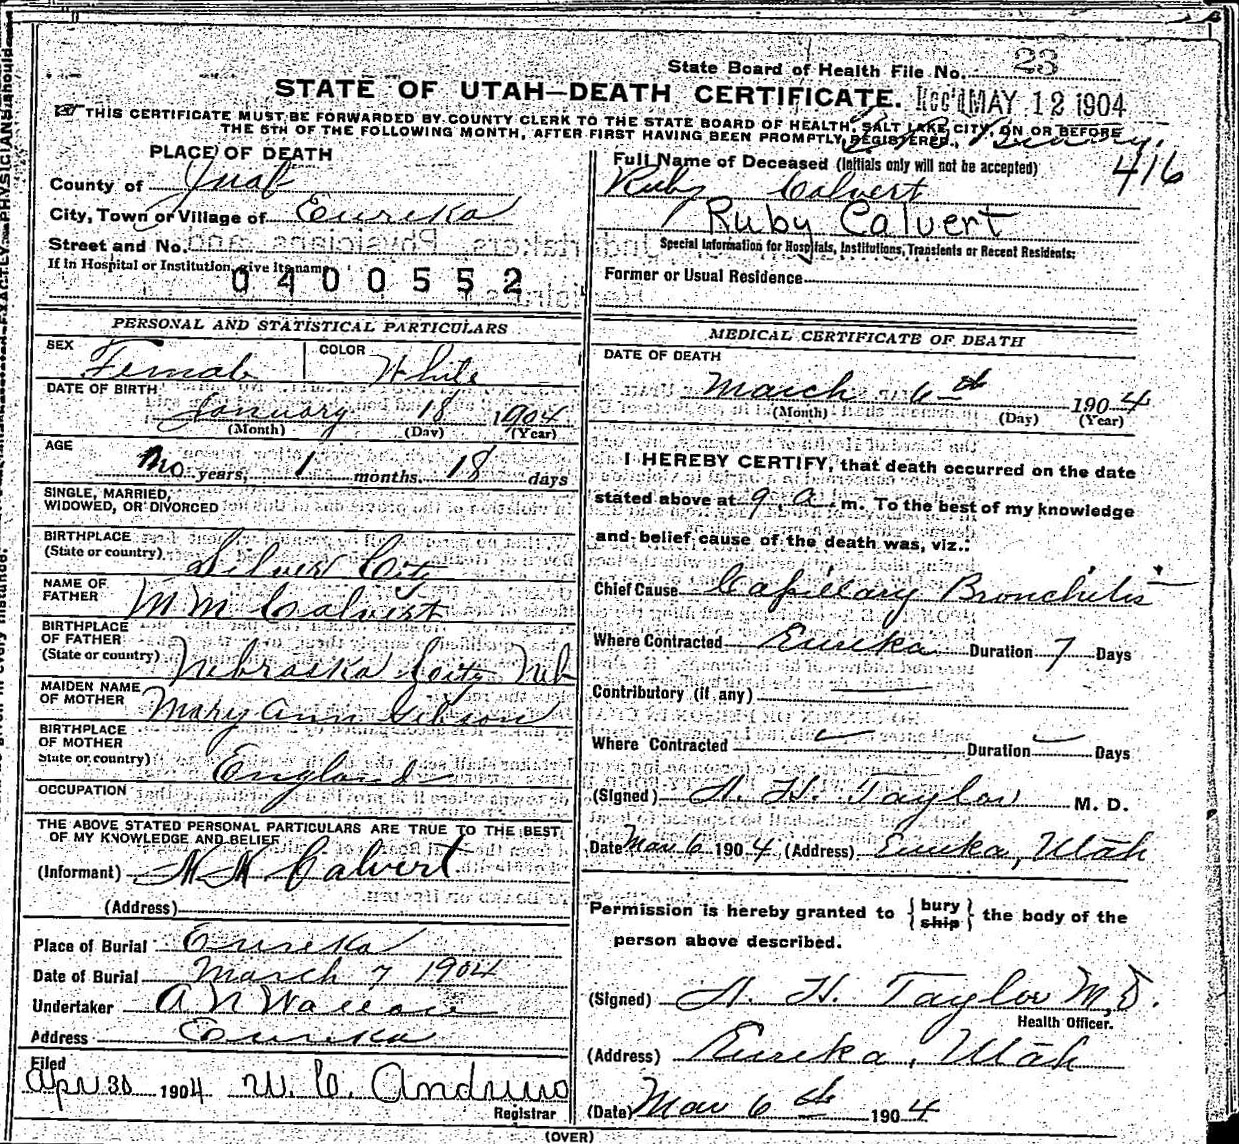 State Board of Health File No. 23
STATE OF UTAH—DEATH CERTIFICATE. Rec'd MAY 12 1904
THIS CERTIFICATE MUST BE FORWARDED BY COUNTY CLERK TO THE STATE BOARD OF HEALTH, SALT LAKE CITY, ON OR BEFORE
THE 5TH OF THE FOLLOWING MONTH, AFTER FIRST HAVING BEEN PROMPTLY REGISTERED.
416
PLACE OF DEATH
County of Juab
City, Town or Village of Eureka
Street and No.
If in Hospital or Institution, give its name
0400552
Full Name of Deceased (Initials only will not be accepted)
Ruby Calvert
Ruby Calvert
Special Information for Hospitals, Institutions, Transients or Recent Residents:
Former or Usual Residence
PERSONAL AND STATISTICAL PARTICULARS
SEX Female COLOR White
DATE OF BIRTH
January 18 1904
(Month) (Day) (Year)
AGE
no years, 1 months, 18 days
SINGLE, MARRIED,
WIDOWED, OR DIVORCED
BIRTHPLACE
(State or country) Silver City
NAME OF
FATHER M M Calvert
BIRTHPLACE
OF FATHER
(State or country) Nebraska City Neb
MAIDEN NAME
OF MOTHER Mary Ann Gibson
BIRTHPLACE
OF MOTHER
State or country) England
OCCUPATION
THE ABOVE STATED PERSONAL PARTICULARS ARE TRUE TO THE BEST
OF MY KNOWLEDGE AND BELIEF
(Informant) M M Calvert
(Address)
Place of Burial Eureka
Date of Burial March 7 1904
Undertaker A N Wallace
Address Eureka
Filed
Apr 30 1904 W. C. Andrews
Registrar
MEDICAL CERTIFICATE OF DEATH
DATE OF DEATH
March 6th 1904
(Month) (Day) (Year)
I HEREBY CERTIFY, that death occurred on the date
stated above at 9 a. m. To the best of my knowledge
and belief cause of the death was, viz.:
Chief Cause Capillary Bronchitis
Where Contracted Eureka Duration 7 Days
Contributory (if any)
Where Contracted Duration Days
(Signed) A. H. Taylor M. D.
Date Mar 6 1904 (Address) Eureka, Utah
Permission is hereby granted to {bury
ship} the body of the
person above described.
(Signed) A. H. Taylor M,D.
Health Officer.
(Address) Eureka, Utah
(Date) Mar 6th 1904
(OVER)